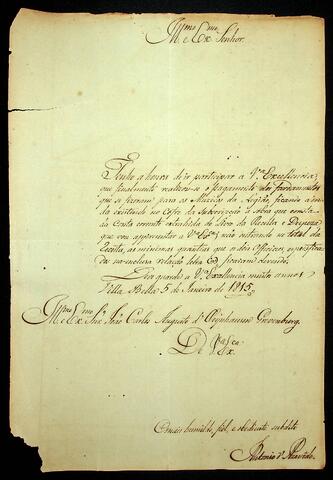 Illmo e Exmo Senhor.
Tenho a honra de participar a Va Excellencia,
que finalmente realizou-se o pagamento dos fardamentos
que se fizerão para as Muzicas da Legião ficando ainda
existindo no Cofre da Subscripção a sobra que consta
da Conta corrente extrahida do Livro da Receita e Despeza
que vou appresentar a Va Exa não entrando no total da
Receita, as minimas quantias que os dois Officiaes
na incluza relação ficárão devendo.
Deos guarde a Va Excellencia muitos annos
Villa Bella 5 de Janeiro de 1815.
Illmo e Exmo Snr João Carlos Augusto d'Oeynhausen Grevenberg.
De Va Exca
O mais humilde, fiel, e obediente subdito
Antonio